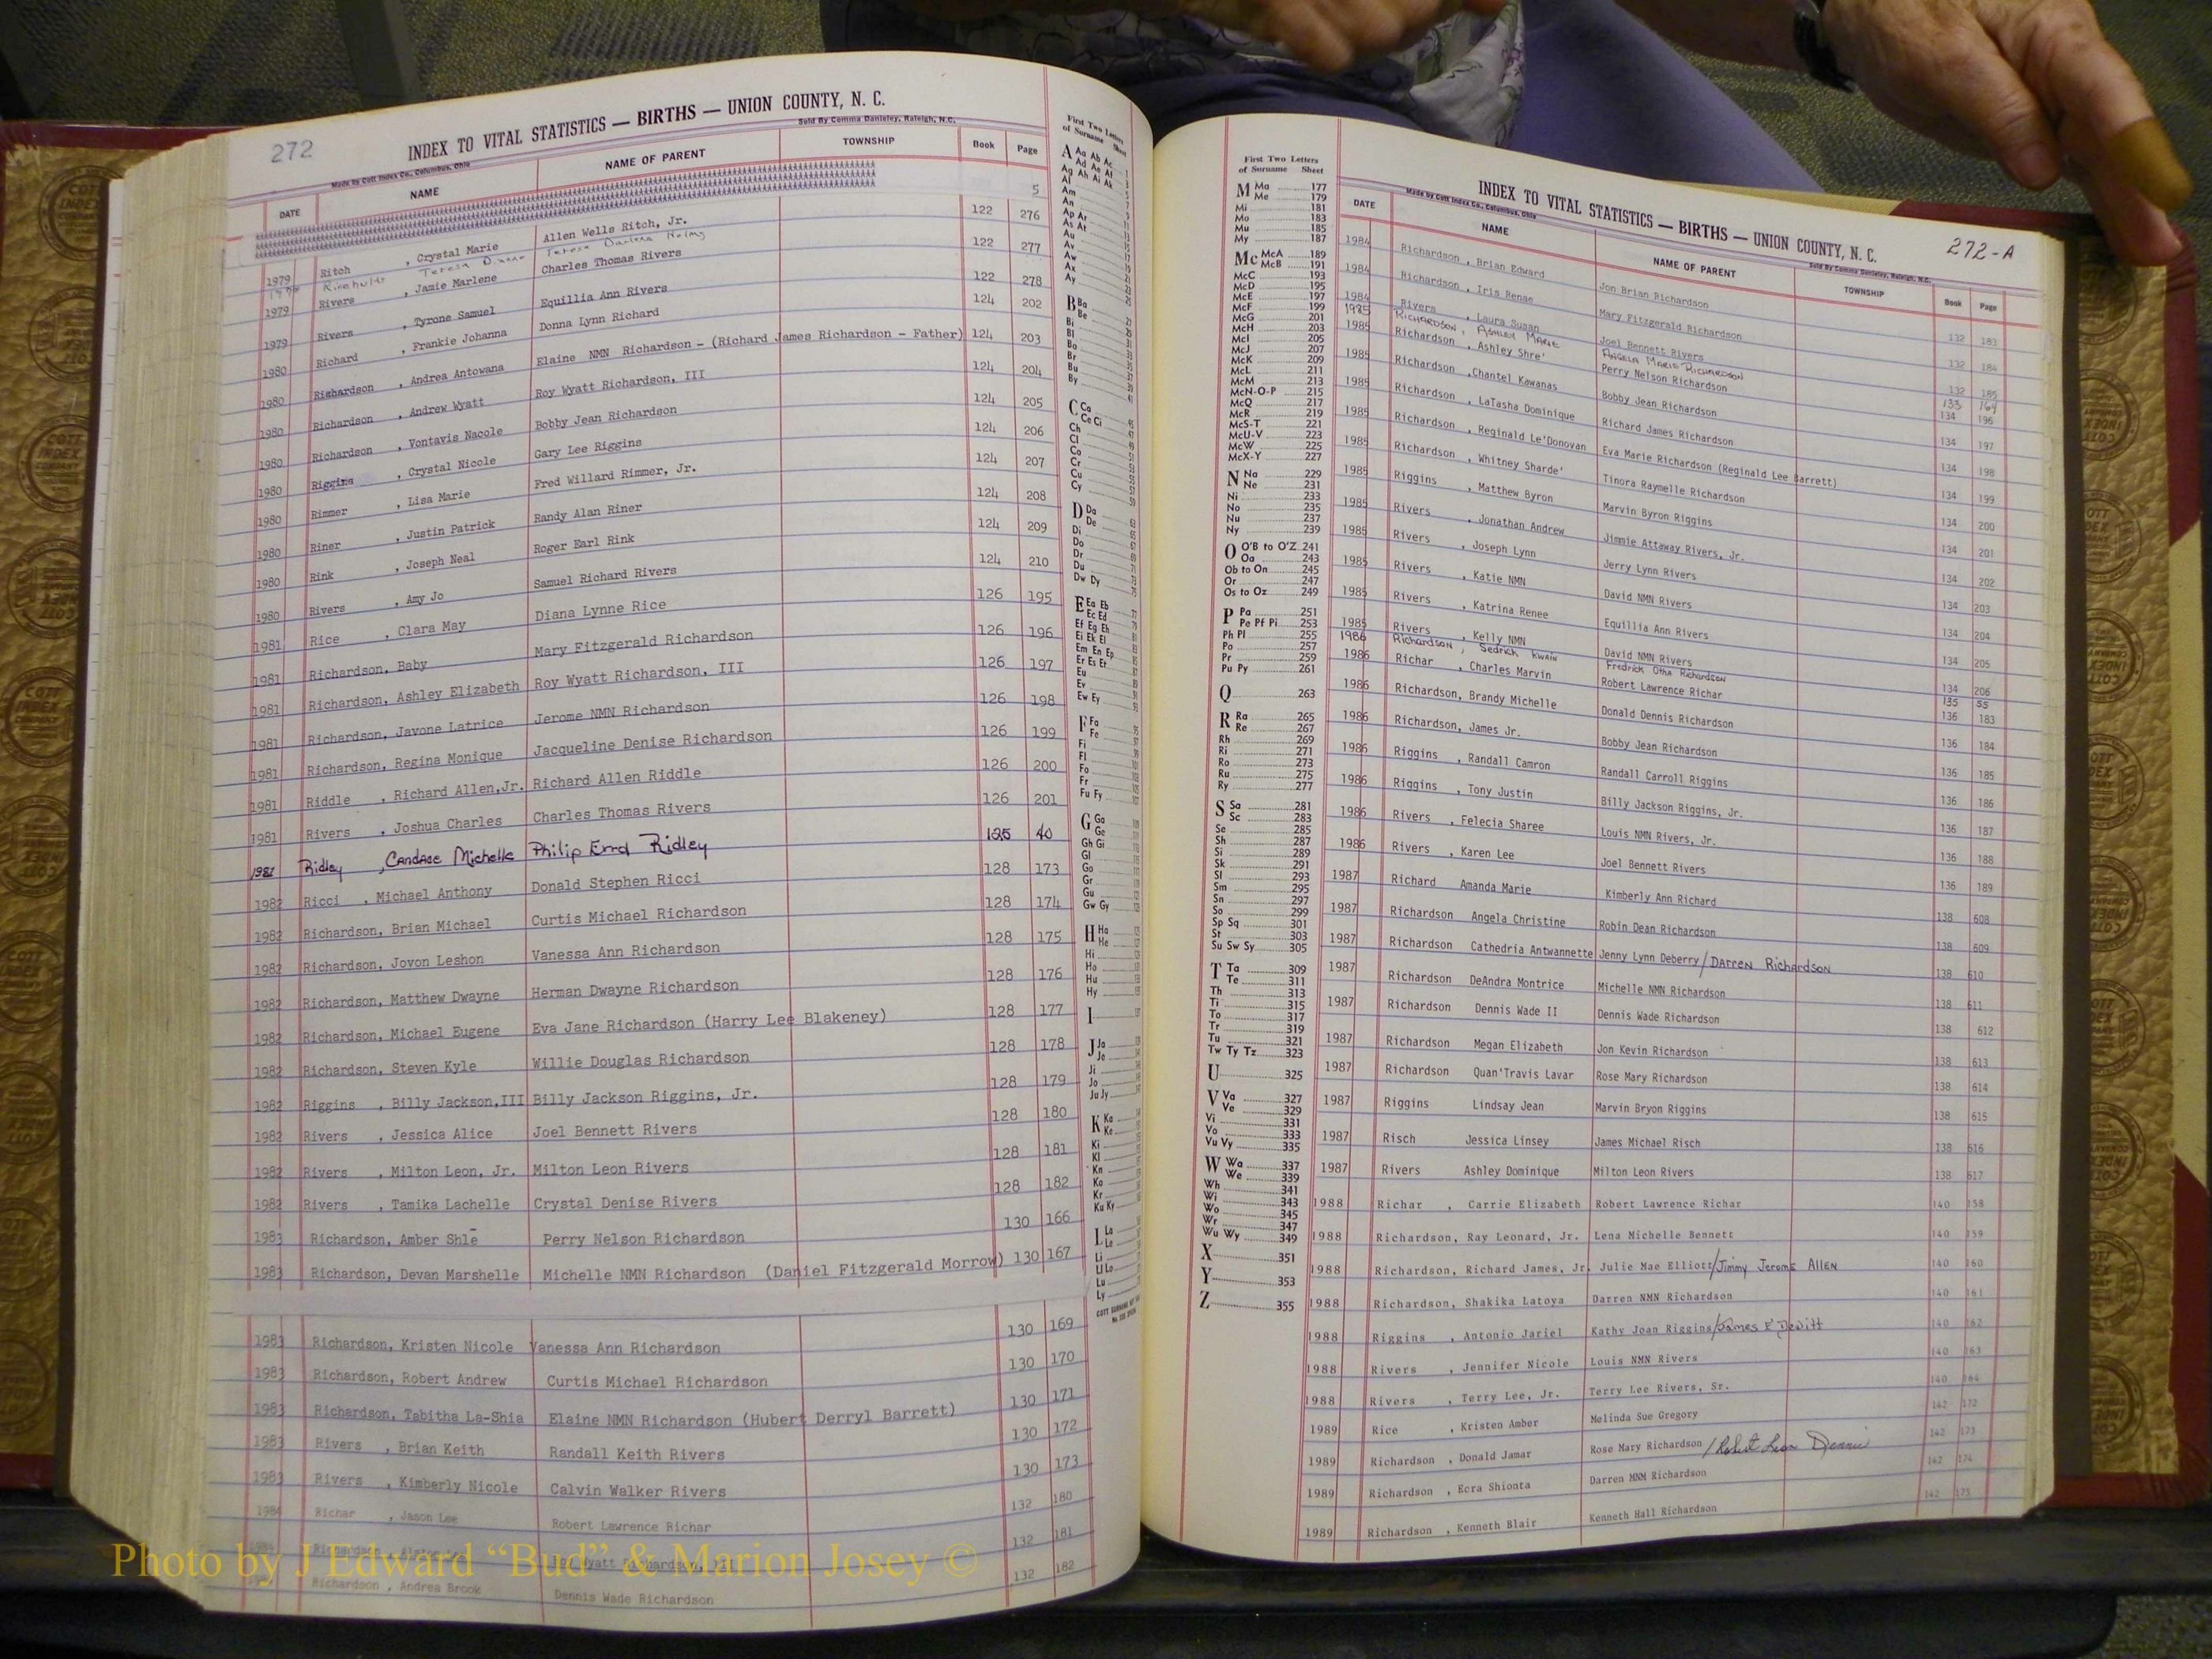 272
INDEX TO VITAL STATISTICS — BIRTHS — UNION COUNTY, N. C.
Made by Cott Index Co., Columbus, Ohio Sold By Comma Danieley, Raleigh, N.C.
DATE NAME NAME OF PARENT TOWNSHIP Book Page
5
1979 Ritch , Crystal Marie Allen Wells Ritch, Jr. 122 276
Teresa
1979 Rivers , Jamie Marlene Charles Thomas Rivers 122 277
1979 Rivers , Tyrone Samuel Equillia Ann Rivers 122 278
1980 Richard , Frankie Johanna Donna Lynn Richard 124 202
1980 Richardson , Andrea Antowana Elaine NMN Richardson - (Richard James Richardson - Father) 124 203
1980 Richardson , Andrew Wyatt Roy Wyatt Richardson, III 124 204
1980 Richardson , Vontavis Nacole Bobby Jean Richardson 124 205
1980 Riggins , Crystal Nicole Gary Lee Riggins 124 206
1980 Rimmer , Lisa Marie Fred Willard Rimmer, Jr. 124 207
1980 Riner , Justin Patrick Randy Alan Riner 124 208
1980 Rink , Joseph Neal Roger Earl Rink 124 209
1980 Rivers , Amy Jo Samuel Richard Rivers 124 210
1981 Rice , Clara May Diana Lynne Rice 126 195
1981 Richardson, Baby Mary Fitzgerald Richardson 126 196
1981 Richardson, Ashley Elizabeth Roy Wyatt Richardson, III 126 197
1981 Richardson, Javone Latrice Jerome NMN Richardson 126 198
1981 Richardson, Regina Monique Jacqueline Denise Richardson 126 199
1981 Riddle , Richard Allen,Jr. Richard Allen Riddle 126 200
1981 Rivers , Joshua Charles Charles Thomas Rivers 126 201
1981 Ridley , Candace Michelle Philip Ridley 125 40
1982 Ricci , Michael Anthony Donald Stephen Ricci 128 173
1982 Richardson, Brian Michael Curtis Michael Richardson 128 174
1982 Richardson, Jovon Leshon Vanessa Ann Richardson 128 175
1982 Richardson, Matthew Dwayne Herman Dwayne Richardson 128 176
1982 Richardson, Michael Eugene Eva Jane Richardson (Harry Lee Blakeney) 128 177
1982 Richardson, Steven Kyle Willie Douglas Richardson 128 178
1982 Riggins , Billy Jackson,III Billy Jackson Riggins, Jr. 128 179
1982 Rivers , Jessica Alice Joel Bennett Rivers 128 180
1982 Rivers , Milton Leon, Jr. Milton Leon Rivers 128 181
1982 Rivers , Tamika Lachelle Crystal Denise Rivers 128 182
1983 Richardson, Amber Shle Perry Nelson Richardson 130 166
1983 Richardson, Devan Marshelle Michelle NMN Richardson (Daniel Fitzgerald Morrow) 130 167
1983 Richardson, Kristen Nicole Vanessa Ann Richardson 130 169
1983 Richardson, Robert Andrew Curtis Michael Richardson 130 170
1983 Richardson, Tabitha La-Shia Elaine NMN Richardson (Hubert Derryl Barrett) 130 171
1983 Rivers , Brian Keith Randall Keith Rivers 130 172
1983 Rivers , Kimberly Nicole Calvin Walker Rivers 130 173
1984 Richar , Jason Lee Robert Lawrence Richar 132 180
1984 Richardson, Roy Wyatt Richardson, III 132 181
Richardson , Andrea Brook Dennis Wade Richardson 132 182
First Two Letters
of Surname Sheet
A Aa Ab Ac
Ad Ae Af
Ag Ah Ai Ak
Al
Am
An
Ap Ar
As At
Au
Av
Aw
Ax
Ay
B Ba
Be
Bi
Bl
Bo
Br
Bu
By
C Ca
Ce Ci
Ch
Cl
Co
Cr
Cu
Cy
D Da
De
Di
Do
Dr
Du
Dw Dy
E Ea Eb
Ec Ed
Ef Eg Eh
Ei Ek El
Em En Ep
Er Es Et
Eu
Ev
Ew Ey
F Fa
Fe
Fi
Fl
Fo
Fr
Fu Fy
G Ga
Ge
Gh Gi
Gl
Go
Gr
Gu
Gw Gy
H Ha
He
Hi
Ho
Hu
Hy
I
J Ja
Je
Ji
Jo
Ju Jy
K Ka
Ke
Ki
Kl
Kn
Ko
Kr
Ku Ky
L La
Le
Li
Ll Lo
Lu
Ly
First Two Letters
of Surname Sheet
M Ma 177
Me 179
Mi 181
Mo 183
Mu 185
My 187
Mc McA 189
McB 191
McC 193
McD 195
McE 197
McF 199
McG 201
McH 203
McI 205
McJ 207
McK 209
McL 211
McM 213
McN-O-P 215
McQ 217
McR 219
McS-T 221
McU-V 223
McW 225
McX-Y 227
N Na 229
Ne 231
Ni 233
No 235
Nu 237
Ny 239
O O'B to O'Z 241
Oa 243
Ob to On 245
Or 247
Os to Oz 249
P Pa 251
Pe Pf Pi 253
Ph Pl 255
Po 257
Pr 259
Pu Py 261
Q 263
R Ra 265
Re 267
Rh 269
Ri 271
Ro 273
Ru 275
Ry 277
S Sa 281
Sc 283
Se 285
Sh 287
Si 289
Sk 291
Sl 293
Sm 295
Sn 297
So 299
Sp Sq 301
St 303
Su Sw Sy 305
T Ta 309
Te 311
Th 313
Ti 315
To 317
Tr 319
Tu 321
Tw Ty Tz 323
U 325
V Va 327
Ve 329
Vi 331
Vo 333
Vu Vy 335
W Wa 337
We 339
Wh 341
Wi 343
Wo 345
Wr 347
Wu Wy 349
X 351
Y 353
Z 355
INDEX TO VITAL STATISTICS — BIRTHS — UNION COUNTY, N. C. 272-A
Made by Cott Index Co., Columbus, Ohio Sold By Comma Danieley, Raleigh, N.C.
DATE NAME NAME OF PARENT TOWNSHIP Book Page
1984 Richardson , Brian Edward Jon Brian Richardson 132 183
1984 Richardson , Iris Renae Mary Fitzgerald Richardson 132 184
1984 Rivers , Laura Susan Joel Bennett Rivers 132 185
1985 RICHARDSON, ASHLEY MARIE ANGELA MARIE RICHARDSON 133 164
1985 Richardson , Ashley Shre' Perry Nelson Richardson 134 196
1985 Richardson ,Chantel Kawanas Bobby Jean Richardson 134 197
1985 Richardson , LaTasha Dominique Richard James Richardson 134 198
1985 Richardson , Reginald Le'Donovan Eva Marie Richardson (Reginald Lee Barrett) 134 199
1985 Richardson , Whitney Sharde' Tinora Raymelle Richardson 134 200
1985 Riggins , Matthew Byron Marvin Byron Riggins 134 201
1985 Rivers , Jonathan Andrew Jimmie Attaway Rivers, Jr. 134 202
1985 Rivers , Joseph Lynn Jerry Lynn Rivers 134 203
1985 Rivers , Katie NMN David NMN Rivers 134 204
1985 Rivers , Katrina Renee Equillia Ann Rivers 134 205
1985 Rivers , Kelly NMN David NMN Rivers 134 206
1986 Richardson, Sedrick Kwain Fredrick Otha Richardson 135 55
1986 Richar , Charles Marvin Robert Lawrence Richar 136 183
1986 Richardson, Brandy Michelle Donald Dennis Richardson 136 184
1986 Richardson, James Jr. Bobby Jean Richardson 136 185
1986 Riggins , Randall Camron Randall Carroll Riggins 136 186
1986 Riggins , Tony Justin Billy Jackson Riggins, Jr. 136 187
1986 Rivers , Felecia Sharee Louis NMN Rivers, Jr. 136 188
1986 Rivers , Karen Lee Joel Bennett Rivers 136 189
1987 Richard Amanda Marie Kimberly Ann Richard 138 608
1987 Richardson Angela Christine Robin Dean Richardson 138 609
1987 Richardson Cathedria Antwannette Jenny Lynn Deberry/DARREN Richardson 138 610
1987 Richardson DeAndra Montrice Michelle NMN Richardson 138 611
1987 Richardson Dennis Wade II Dennis Wade Richardson 138 612
1987 Richardson Megan Elizabeth Jon Kevin Richardson 138 613
1987 Richardson Quan'Travis Lavar Rose Mary Richardson 138 614
1987 Riggins Lindsay Jean Marvin Bryon Riggins 138 615
1987 Risch Jessica Linsey James Michael Risch 138 616
1987 Rivers Ashley Dominique Milton Leon Rivers 138 617
1988 Richar , Carrie Elizabeth Robert Lawrence Richar 140 158
1988 Richardson, Ray Leonard, Jr. Lena Michelle Bennett 140 159
1988 Richardson, Richard James, Jr. Julie Mae Elliott/Jimmy Jerome ALLEN 140 160
1988 Richardson, Shakika Latoya Darren NMN Richardson 140 161
1988 Riggins , Antonio Jariel Kathy Joan Riggins/James E DeWitt 140 162
1988 Rivers , Jennifer Nicole Louis NMN Rivers 140 163
1988 Rivers , Terry Lee, Jr. Terry Lee Rivers, Sr. 140 164
1989 Rice , Kristen Amber Melinda Sue Gregory 142 172
1989 Richardson , Donald Jamar Rose Mary Richardson / Robert Leon Dennis 142 173
1989 Richardson , Ecra Shionta Darren MNM Richardson 142 174
1989 Richardson , Kenneth Blair Kenneth Hall Richardson 142 175
Photo by J Edward “Bud” & Marion Josey ©